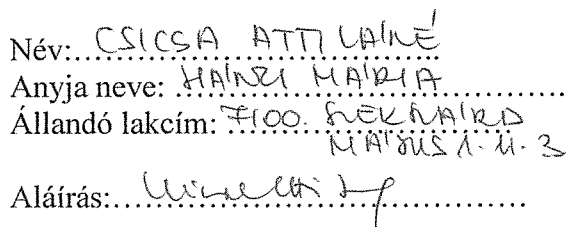 Név: CSICSA ATTILÁINÉ
Anyja neve: HÁINZI MÁRIA
Állandó lakcím: 7100. SZEKSZÁRD
MÁJUS 1. U. 3
Aláírás: